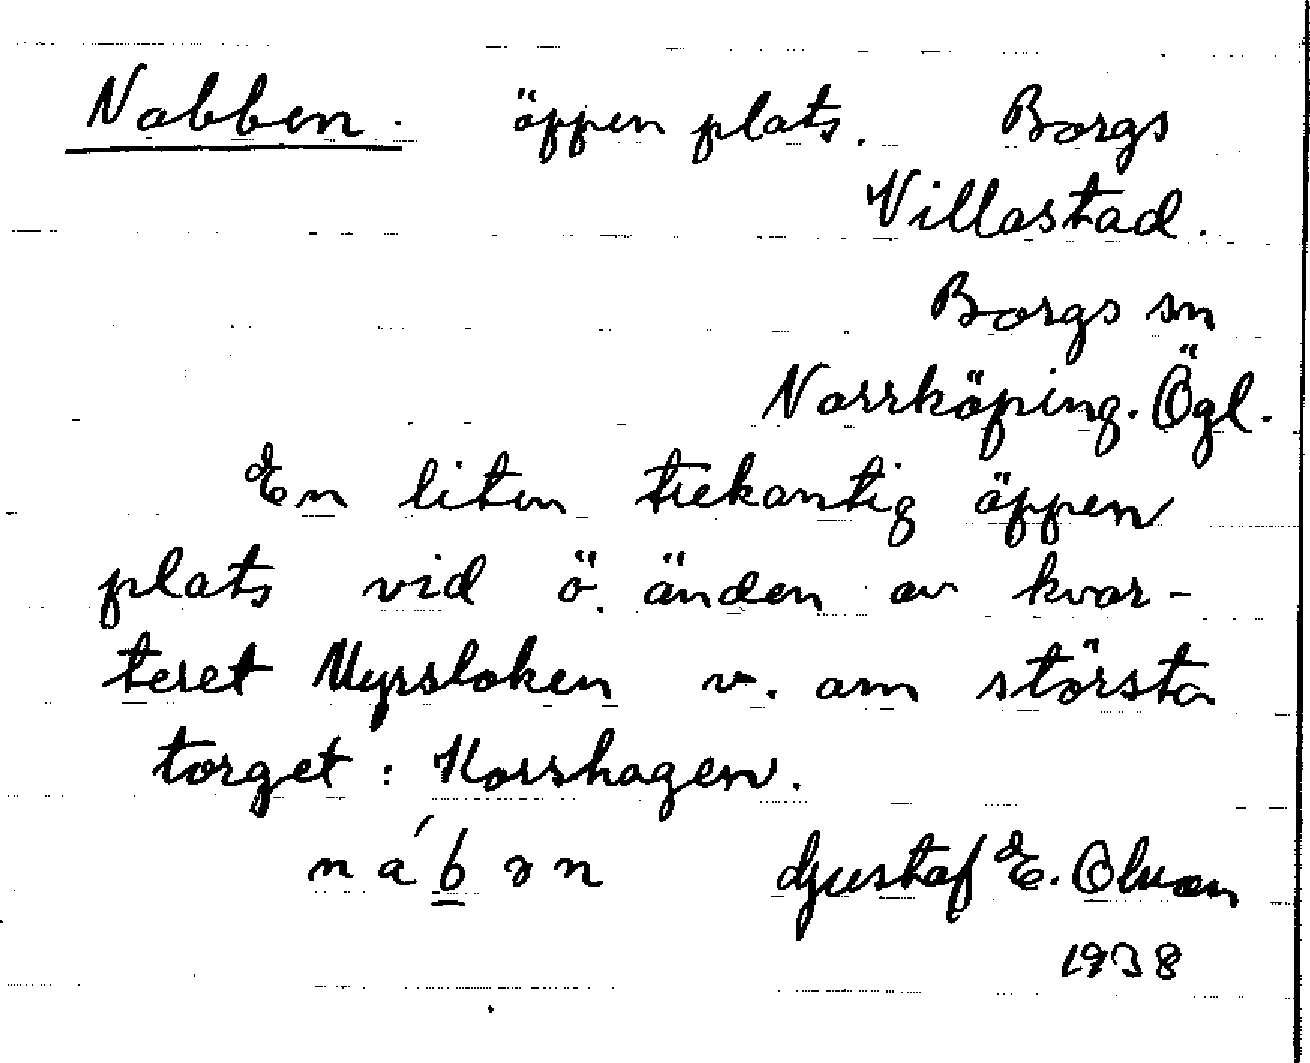 Nabben. öppen plats. Borgs
Villastad.
Borgs sn
Norrköping. Ögl.
En liten trekantig öppen
plats vid ö. änden av kvar-
teret Myrsloken v. om största
torget: Korshagen.
n a ́ b ə n Gustaf E. Olson
1938